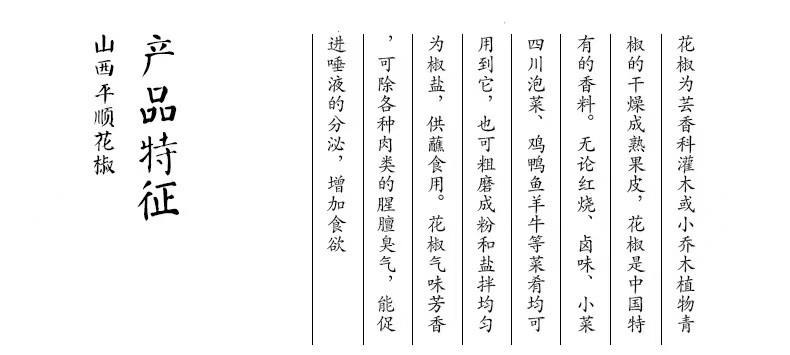 产品特征
山西平顺花椒
花椒为芸香科灌木或小乔木植物青
椒的干燥成熟果皮，花椒是中国特
有的香料。无论红烧、卤味、小菜
四川泡菜、鸡鸭鱼羊牛等菜肴均可
用到它，也可粗磨成粉和盐拌均匀
为椒盐，供蘸食用。花椒气味芳香
，可除各种肉类的腥膻臭气，能促
进唾液的分泌，增加食欲